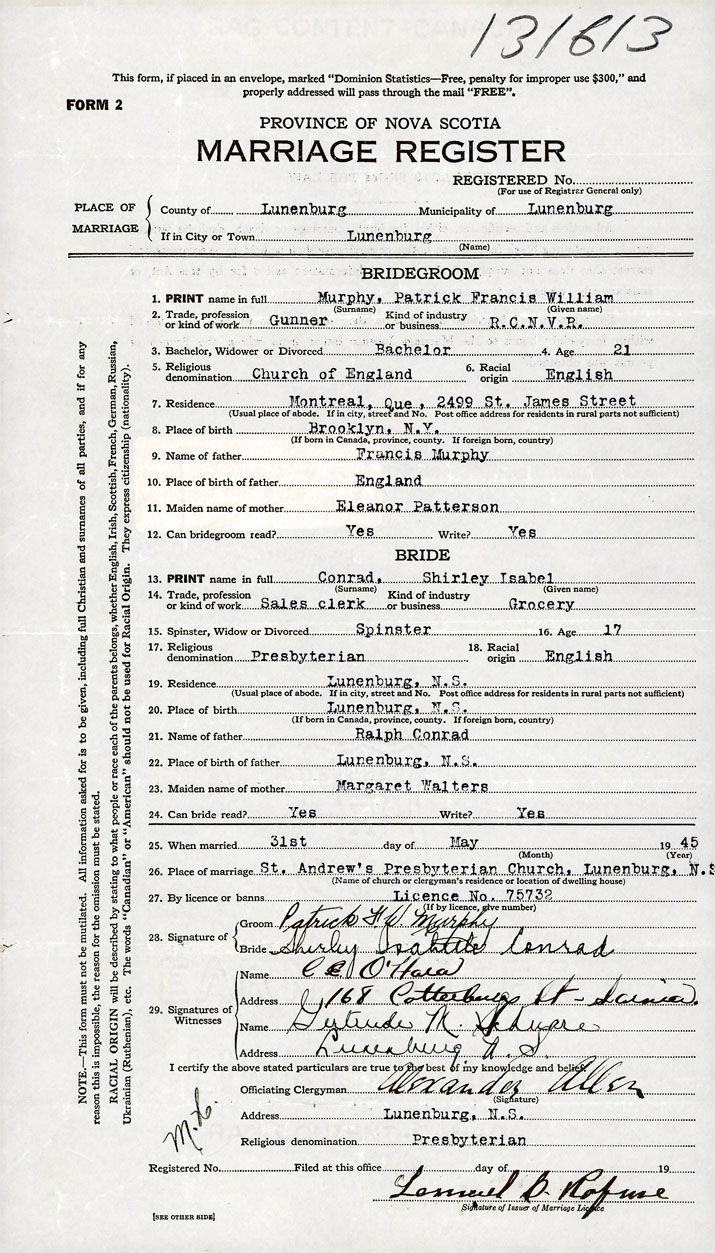 131613
This form, if placed in an envelope, marked “Dominion Statistics—Free, penalty for improper use $300,” and
properly addressed will pass through the mail “FREE”.
FORM 2
PROVINCE OF NOVA SCOTIA
MARRIAGE REGISTER
REGISTERED No.
(For use of Registrar General only)
PLACE OF MARRIAGE
County of Lunenburg Municipality of Lunenburg
If in City or Town Lunenburg
(Name)
BRIDEGROOM
1. PRINT name in full Murphy, Patrick Francis William
(Surname) (Given name)
2. Trade, profession or kind of work Gunner Kind of industry or business R.C.N.V.R.
3. Bachelor, Widower or Divorced Bachelor 4. Age 21
5. Religious denomination Church of England 6. Racial origin English
7. Residence Montreal, Que, 2499 St. James Street
(Usual place of abode. If in city, street and No. Post office address for residents in rural parts not sufficient)
8. Place of birth Brooklyn, N.Y.
(If born in Canada, province, county. If foreign born, country)
9. Name of father Francis Murphy
10. Place of birth of father England
11. Maiden name of mother Eleanor Patterson
12. Can bridegroom read? Yes Write? Yes
BRIDE
13. PRINT name in full Conrad, Shirley Isabel
(Surname) (Given name)
14. Trade, profession or kind of work Sales clerk Kind of industry or business Grocery
15. Spinster, Widow or Divorced Spinster 16. Age 17
17. Religious denomination Presbyterian 18. Racial origin English
19. Residence Lunenburg, N.S.
(Usual place of abode. If in city, street and No. Post office address for residents in rural parts not sufficient)
20. Place of birth Lunenburg, N.S.
(If born in Canada, province, county. If foreign born, country)
21. Name of father Ralph Conrad
22. Place of birth of father Lunenburg, N.S.
23. Maiden name of mother Margaret Walters
24. Can bride read? Yes Write? Yes
25. When married 31st day of May 19 45
(Month) (Year)
26. Place of marriage St. Andrew's Presbyterian Church, Lunenburg, N.S
(Name of church or clergyman's residence or location of dwelling house)
27. By licence or banns Licence No. 75732
(If by licence, give number)
28. Signature of
Groom Patrick F. W. Murphy
Bride Shirley Conrad
29. Signatures of Witnesses
Name O'Hara
Address 168 St - Sarnia.
Name Gertrude M.
Address Lunenburg N.S.
I certify the above stated particulars are true to the best of my knowledge and belief.
Officiating Clergyman Alexander Allen
(Signature)
Address Lunenburg, N.S.
Religious denomination Presbyterian
Registered No. Filed at this office day of 19
Lemuel B. Rafuse
Signature of Issuer of Marriage Licence
[SEE OTHER SIDE]
NOTE.—This form must not be mutilated. All information asked for is to be given, including full Christian and surnames of all parties, and if for any
reason this is impossible, the reason for the omission must be stated.
RACIAL ORIGIN will be described by stating to what people or race each of the parents belongs, whether English, Irish, Scottish, French, German, Russian,
Ukrainian (Ruthenian), etc. The words “Canadian” or “American” should not be used for Racial Origin. They express citizenship (nationality).